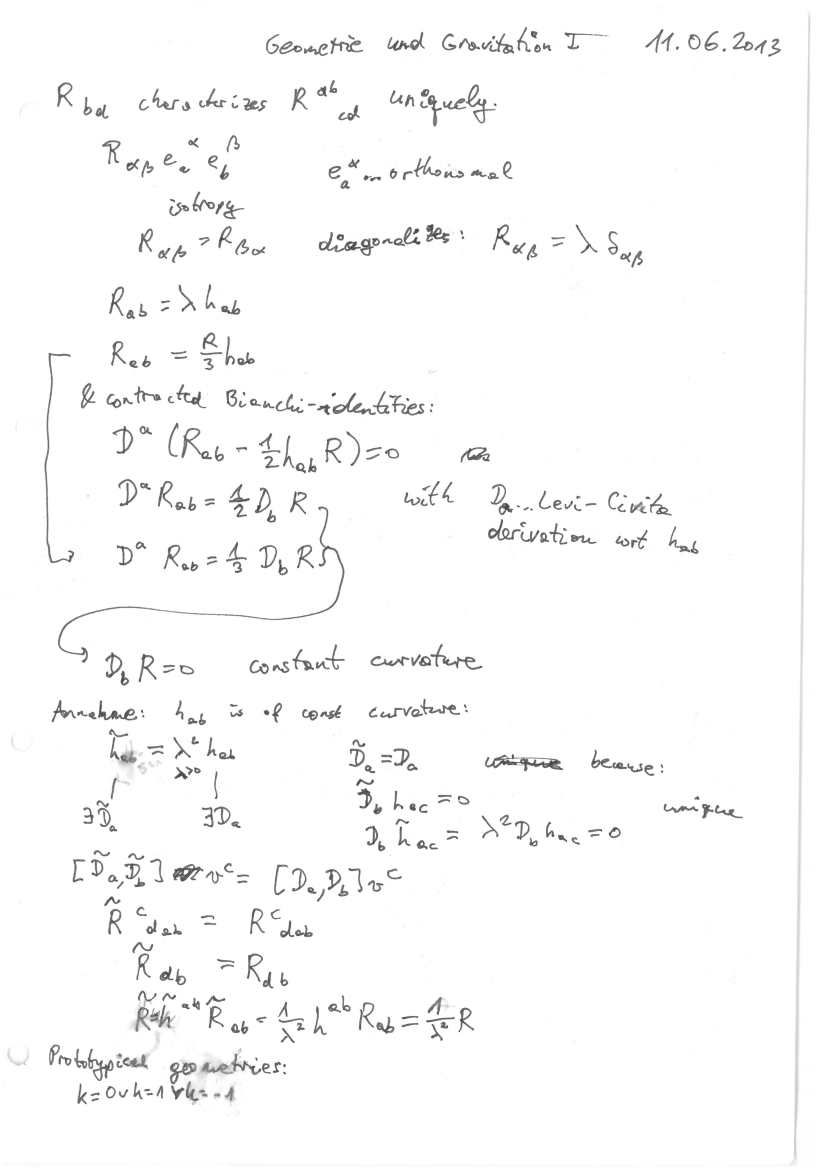 Geometrie und Gravitation I 11.06.2013
R_{bd} characterizes R^{ab}_{cd} uniquely.
R_{αβ} e_a^α e_b^β e_a^α ... orthonomal
isotropy
R_{αβ} = R_{βα} diagonalizes: R_{αβ} = λ δ_{αβ}
R_{ab} = λ h_{ab}
R_{ab} = R/3 h_{ab}
& contracted Bianchi-identities:
D^a (R_{ab} - 1/2 h_{ab} R) = 0
D^a R_{ab} = 1/2 D_b R with D_a ... Levi-Civita
derivation wrt h_{ab}
D^a R_{ab} = 1/3 D_b R
D_b R = 0 constant curvature
Annahme: h_{ab} is of const curvature:
h̃_{ab} = λ² h_{ab} D̃_a = D_a because:
λ>0
∃D̃_a ∃D_a D̃_b h_{ac} = 0 unique
D_b h̃_{ac} = λ² D_b h_{ac} = 0
[D̃_a, D̃_b] v^c = [D_a, D_b] v^c
R̃^c_{dab} = R^c_{dab}
R̃_{db} = R_{db}
R̃ = h̃^{ab} R̃_{ab} = 1/λ² h^{ab} R_{ab} = 1/λ² R
Prototypical geometries:
k = 0 ∨ k = 1 ∨ k = -1